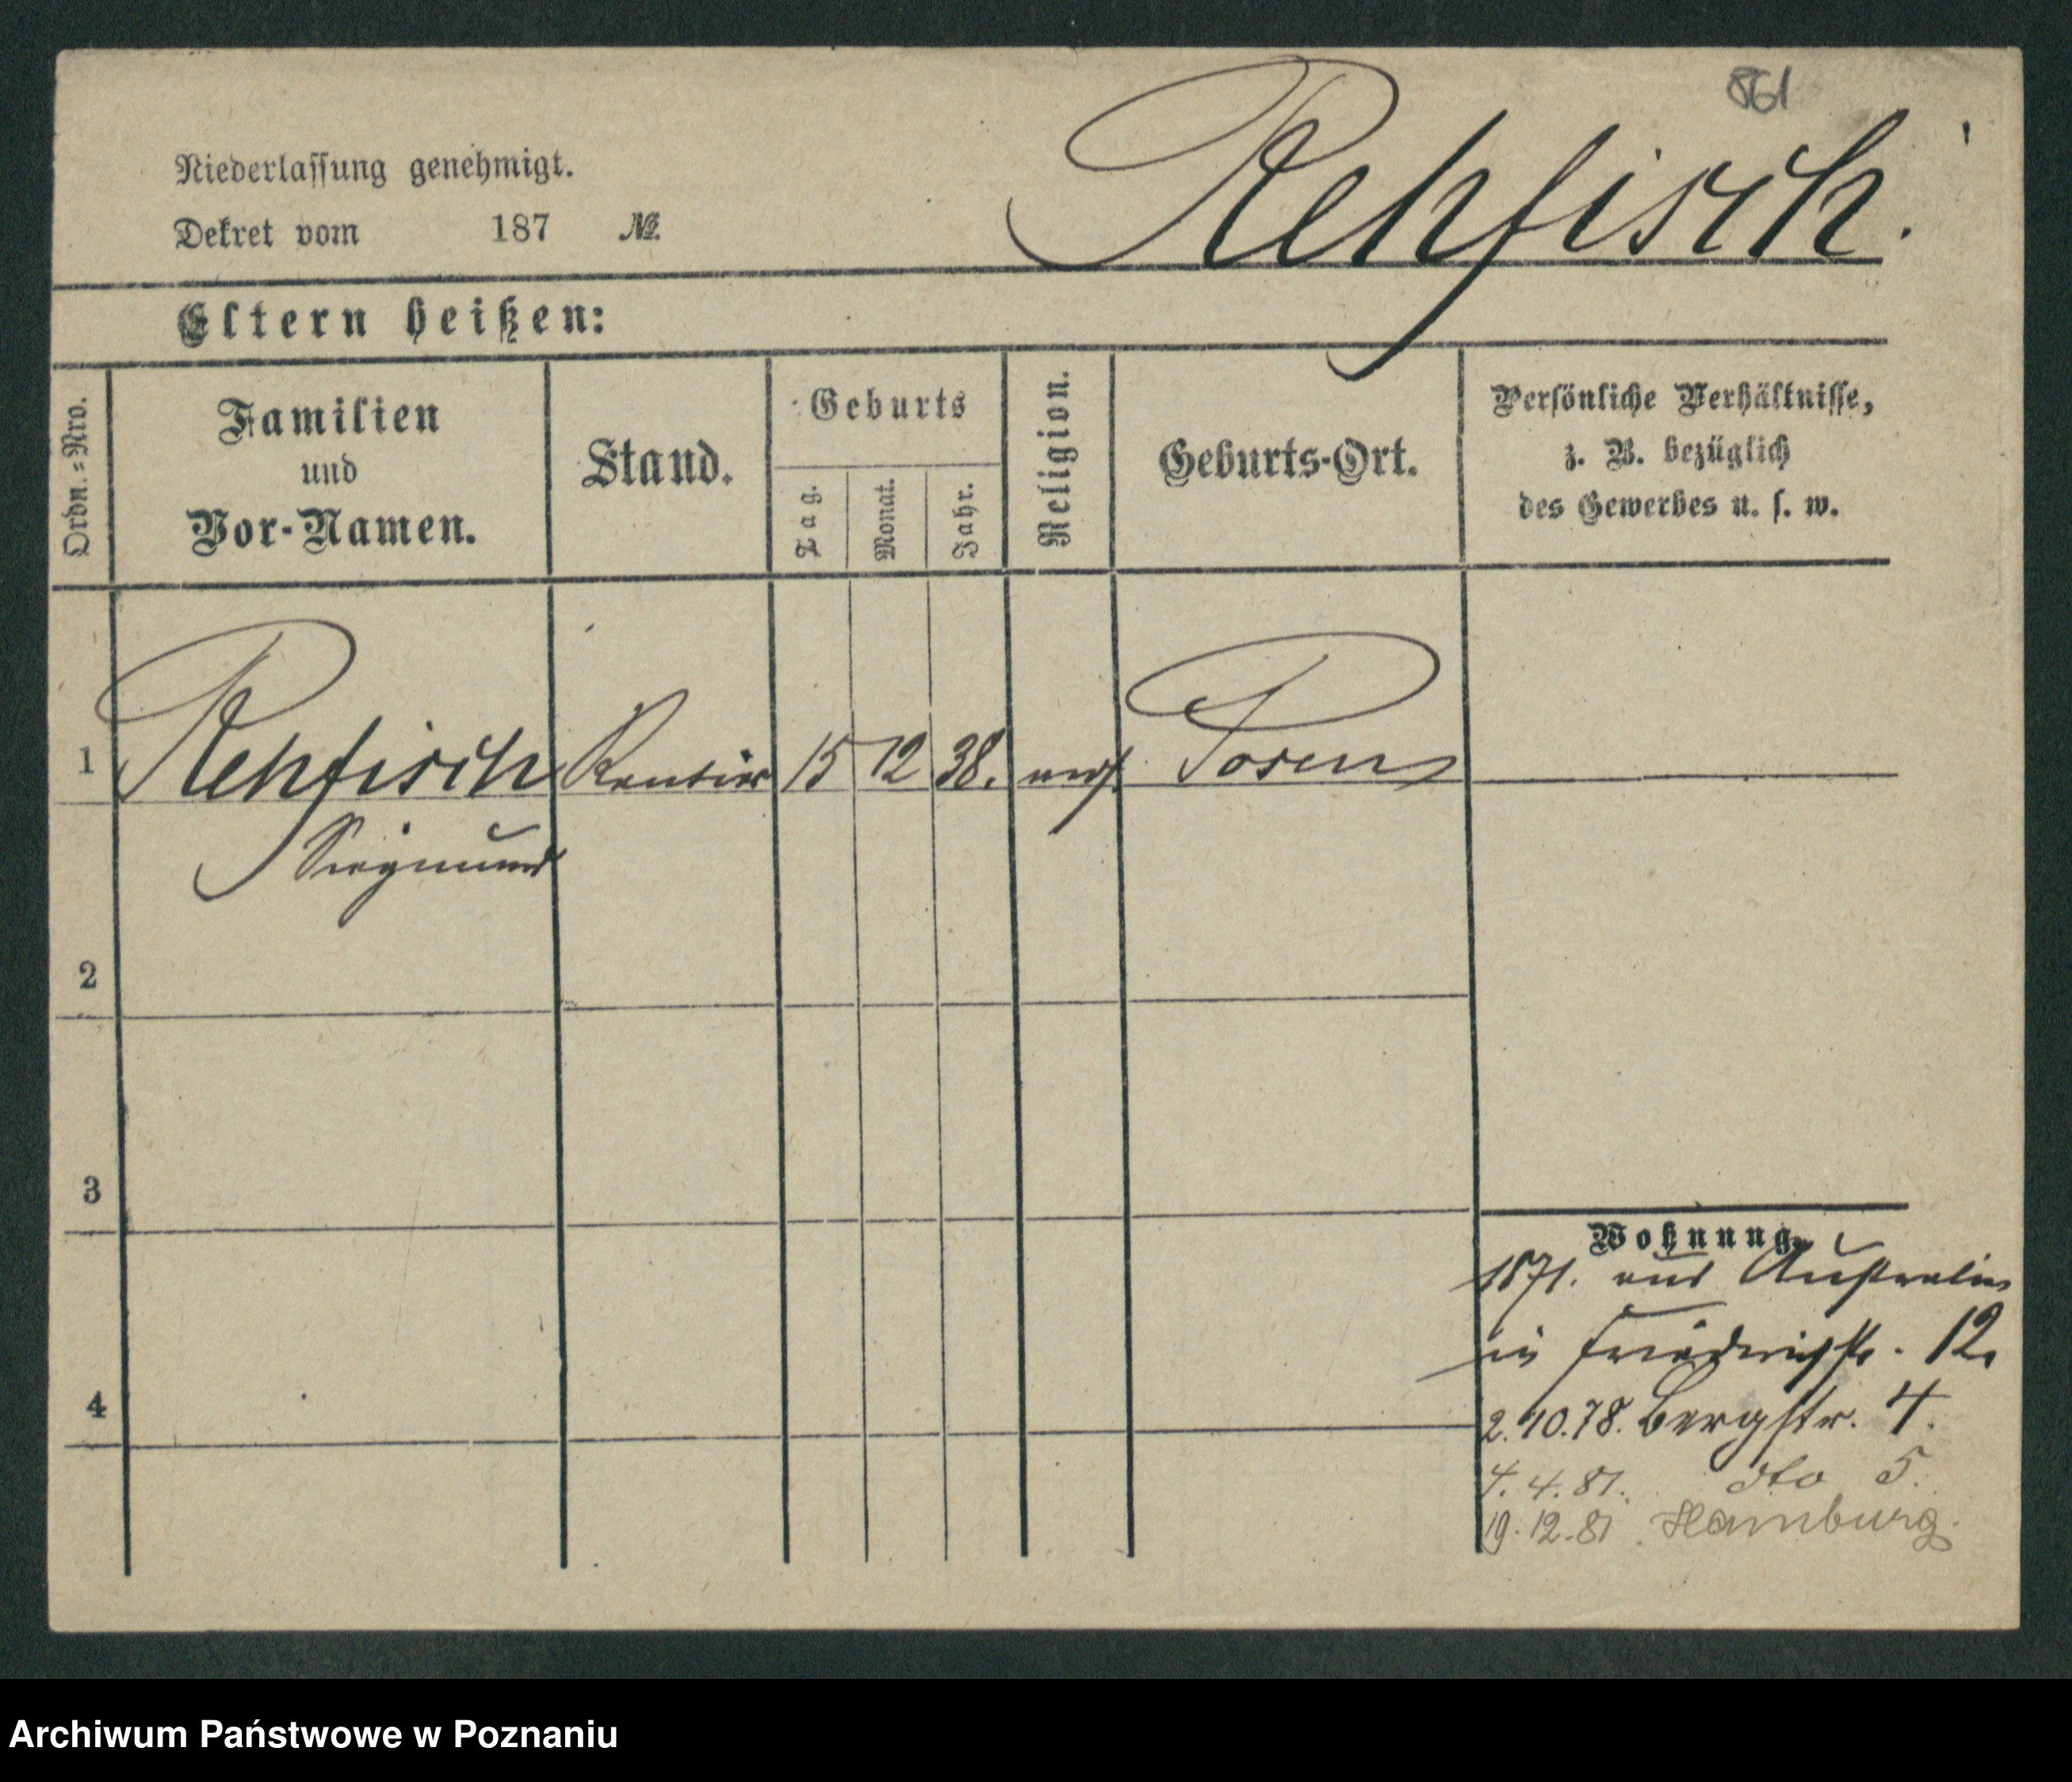 861
Rehfisch.
Niederlassung genehmigt.
Dekret vom 187 №
Eltern heißen:
Ordn.=Nro.
Familien
und
Vor-Namen.
Stand.
Geburts
Tag.
Monat.
Jahr.
Religion.
Geburts-Ort.
Persönliche Verhältnisse,
z. B. bezüglich
des Gewerbes u. s. w.
1 Rehfisch Rentier 15 12 38. mos. Posen
Siegmund
2
3
4
Wohnung.
1871. aus Australien
in Friedrichstr. 12.
2.10.78. Bergstr. 4.
4. 4. 81. dto 5.
19. 12. 81. Hamburg.
Archiwum Państwowe w Poznaniu